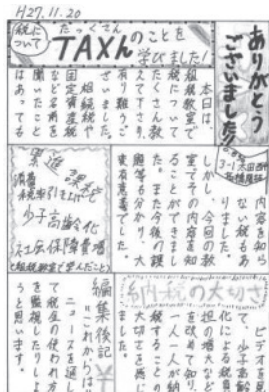 H27.11.20
税について
たっくさん
TAXんのことを
学びました!
ありがとう
ございました!!
3-1
本日は、
租税教室で
税について
たくさん教
えて下さり、
有り難うご
ざいました。
相続税や
固定資産税
など名前を
聞いたこと
はあっても
内容を知ら
ない税もあ
しかし、今回の教
室でその内容を知
ることができまし
た。また今後の課
題等も分かり、大
変有意義でした。
累進課税
消費税率引き上げ
少子高齢化
社会保障費増
(租税教室で学んだこと)
納税の大切さ
ビデオを
て、少子高齢
化による税
担の増大など
を改めて知り、
一人一人が納
税することの
大切さを感じ
編集後記
これからは
ニュースを通し
て税金の使われ方
を監視したりしよ
うと思います。